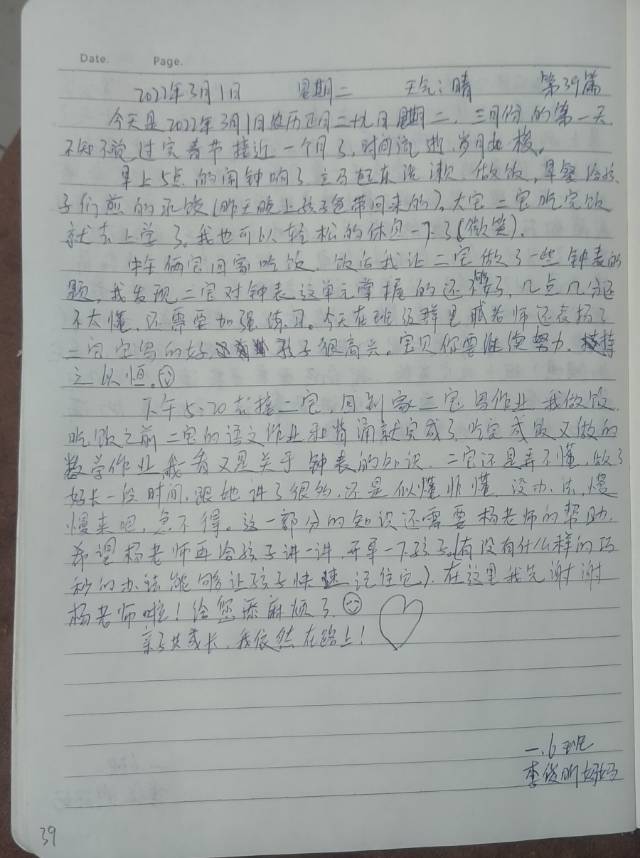 Date.    Page.
2022年3月1日    星期二    天气:晴    第39篇
今天是2022年3月1日农历正月二十九日星期二,三月份的第一天
不知不觉过完春节接近一个月了,时间流逝,岁月如梭。
早上5点的闹钟响了立马起床洗漱、做饭,早餐给孩
子们煎的水饺(昨天晚上孩子爸带回来的),大宝二宝吃完饭
就去上学了,我也可以轻松的休息一下了(微笑)。
中午俩宝回家吃饭,饭后我让二宝做了一些钟表的
题,我发现二宝对钟表这单元掌握的还不够,几点几分还
不太懂,还需要加强练习。今天在班级群里 老师还表扬了
二宝写的好 孩子很高兴,宝贝你要继续努力,持
之以恒。
下午5:20去接二宝,回到家二宝写作业我做饭,
吃饭之前二宝的语文作业和背诵就完成了吃完饭又做的
数学作业我看又是关于钟表的知识,二宝还是弄不懂,做了
好长一段时间,跟她讲了很多,还是似懂非懂,没办法,慢
慢来吧,急不得。这一部分的知识还需要杨老师的帮助,
希望杨老师再给孩子讲一讲,开导一下孩子,(有没有什么样的巧
妙的办法能够让孩子快速记住它)。在这里我先谢谢
杨老师啦!给您添麻烦了
亲子共成长,我依然在路上!
一.6班
李俊 妈妈
39